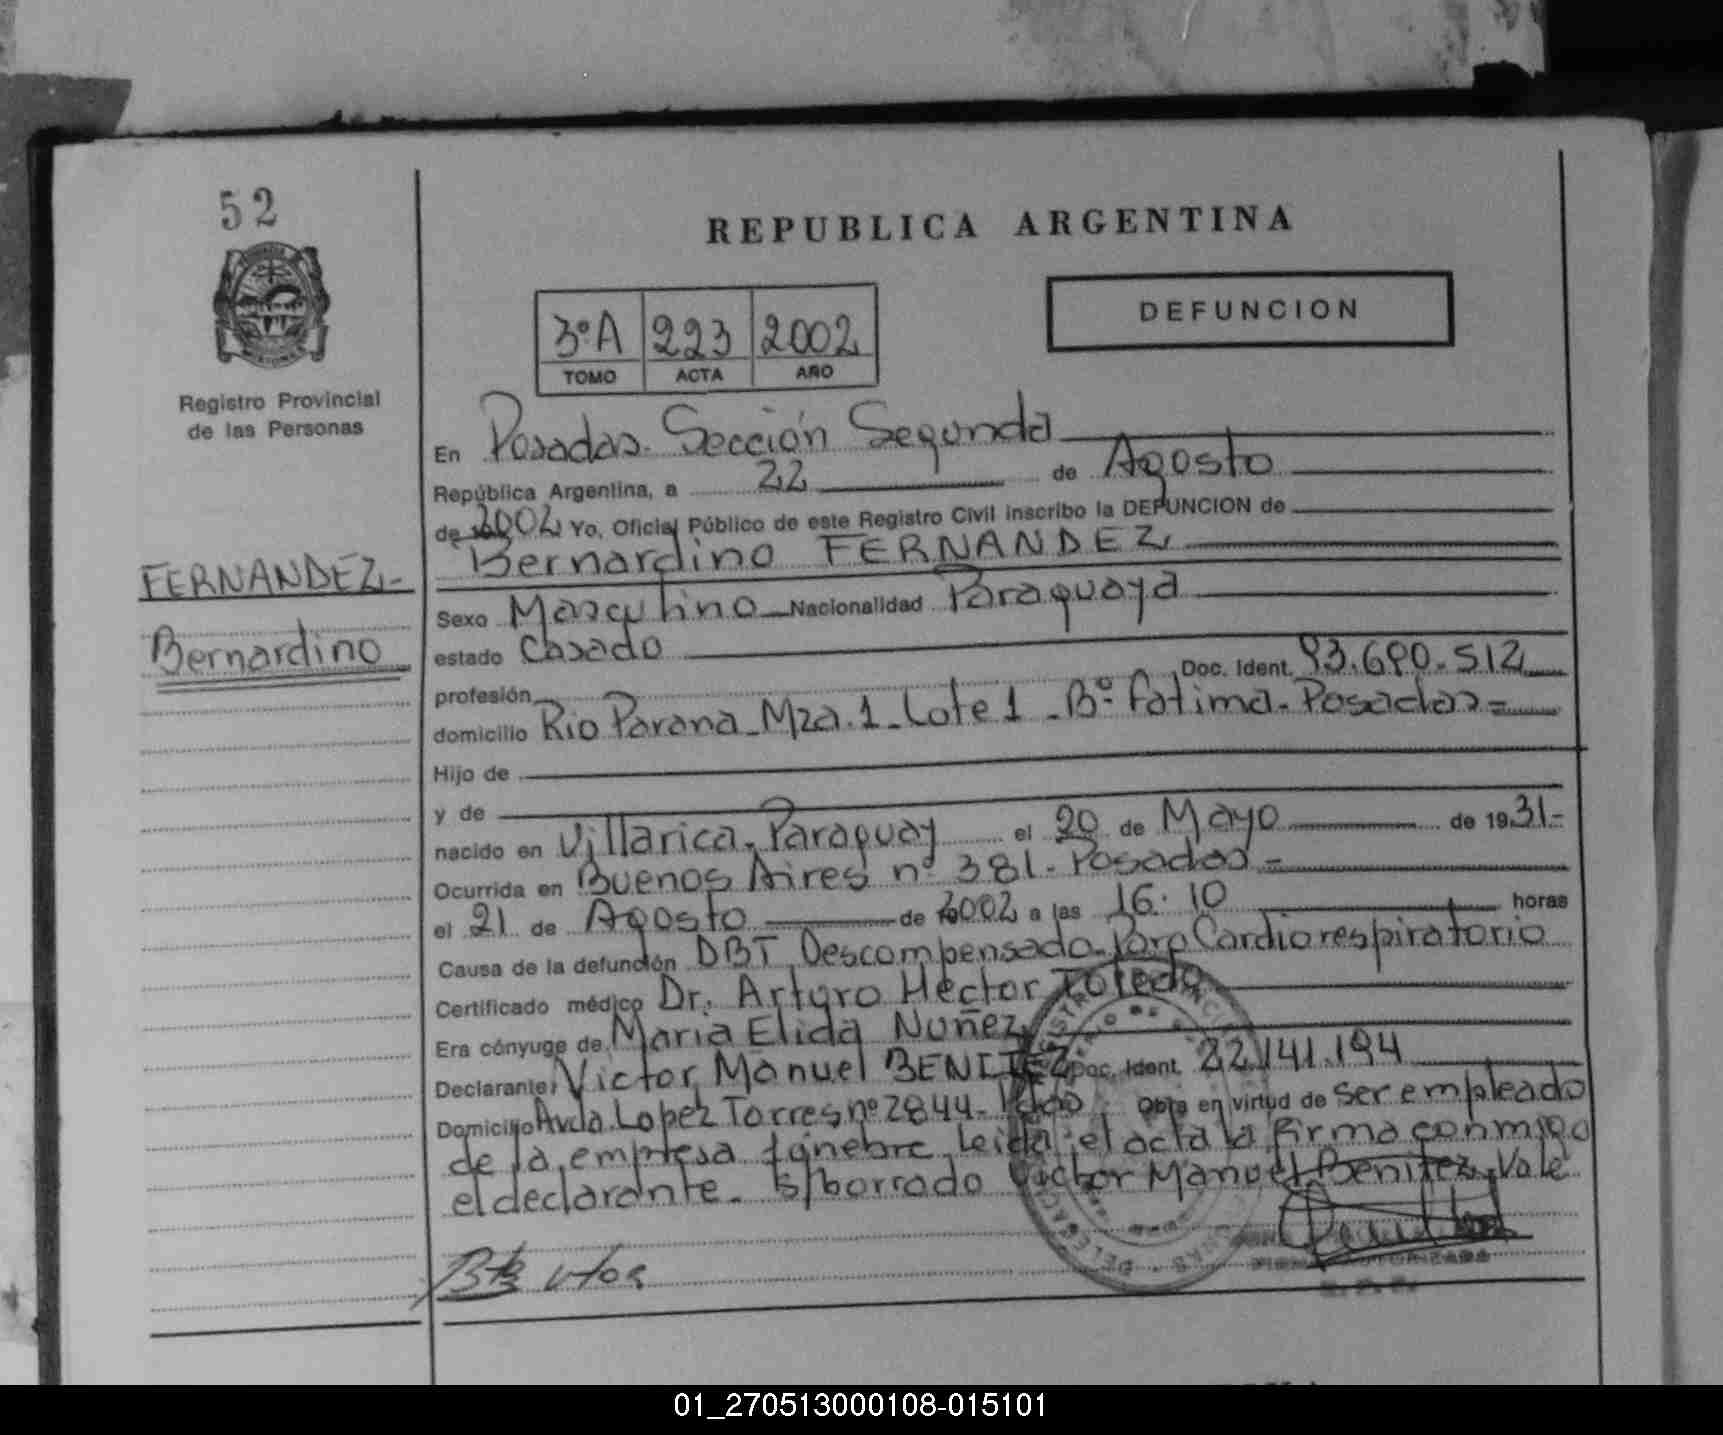 52
REPUBLICA ARGENTINA
DEFUNCION
3ºA 223 2002
TOMO ACTA AÑO
Registro Provincial
de las Personas
En Posadas. Sección Segunda
República Argentina, a 22 de Agosto
de 2002 Yo, Oficial Público de este Registro Civil inscribo la DEFUNCION de
Bernardino FERNANDEZ
FERNANDEZ-
Bernardino
Sexo Masculino Nacionalidad Paraguaya
estado Casado
Doc. Ident. 93.690.512
profesión
domicilio Rio Parana - Mza. 1 - Lote 1 - Bº Fatima - Posadas =
Hijo de
y de
nacido en Villarica, Paraguay el 20 de Mayo de 1931.-
Ocurrida en Buenos Aires nº 381 - Posadas =
el 21 de Agosto de 2002 a las 16:10 horas
Causa de la defunción DBT Descompensada - Paro Cardiorespiratorio
Certificado médico Dr. Arturo Héctor Toledo
Era cónyuge de Maria Elida Nuñez
Declarante: Victor Manuel BENITEZ Doc. Ident. 22.141.194
Domicilio Avda. Lopez Torres nº 2844 - Obra en virtud de ser empleado
de la empresa fúnebre. Leida el acta la firma conmigo
el declarante. S/borrado Victor Manuel Benitez, Vale
01_270513000108-015101